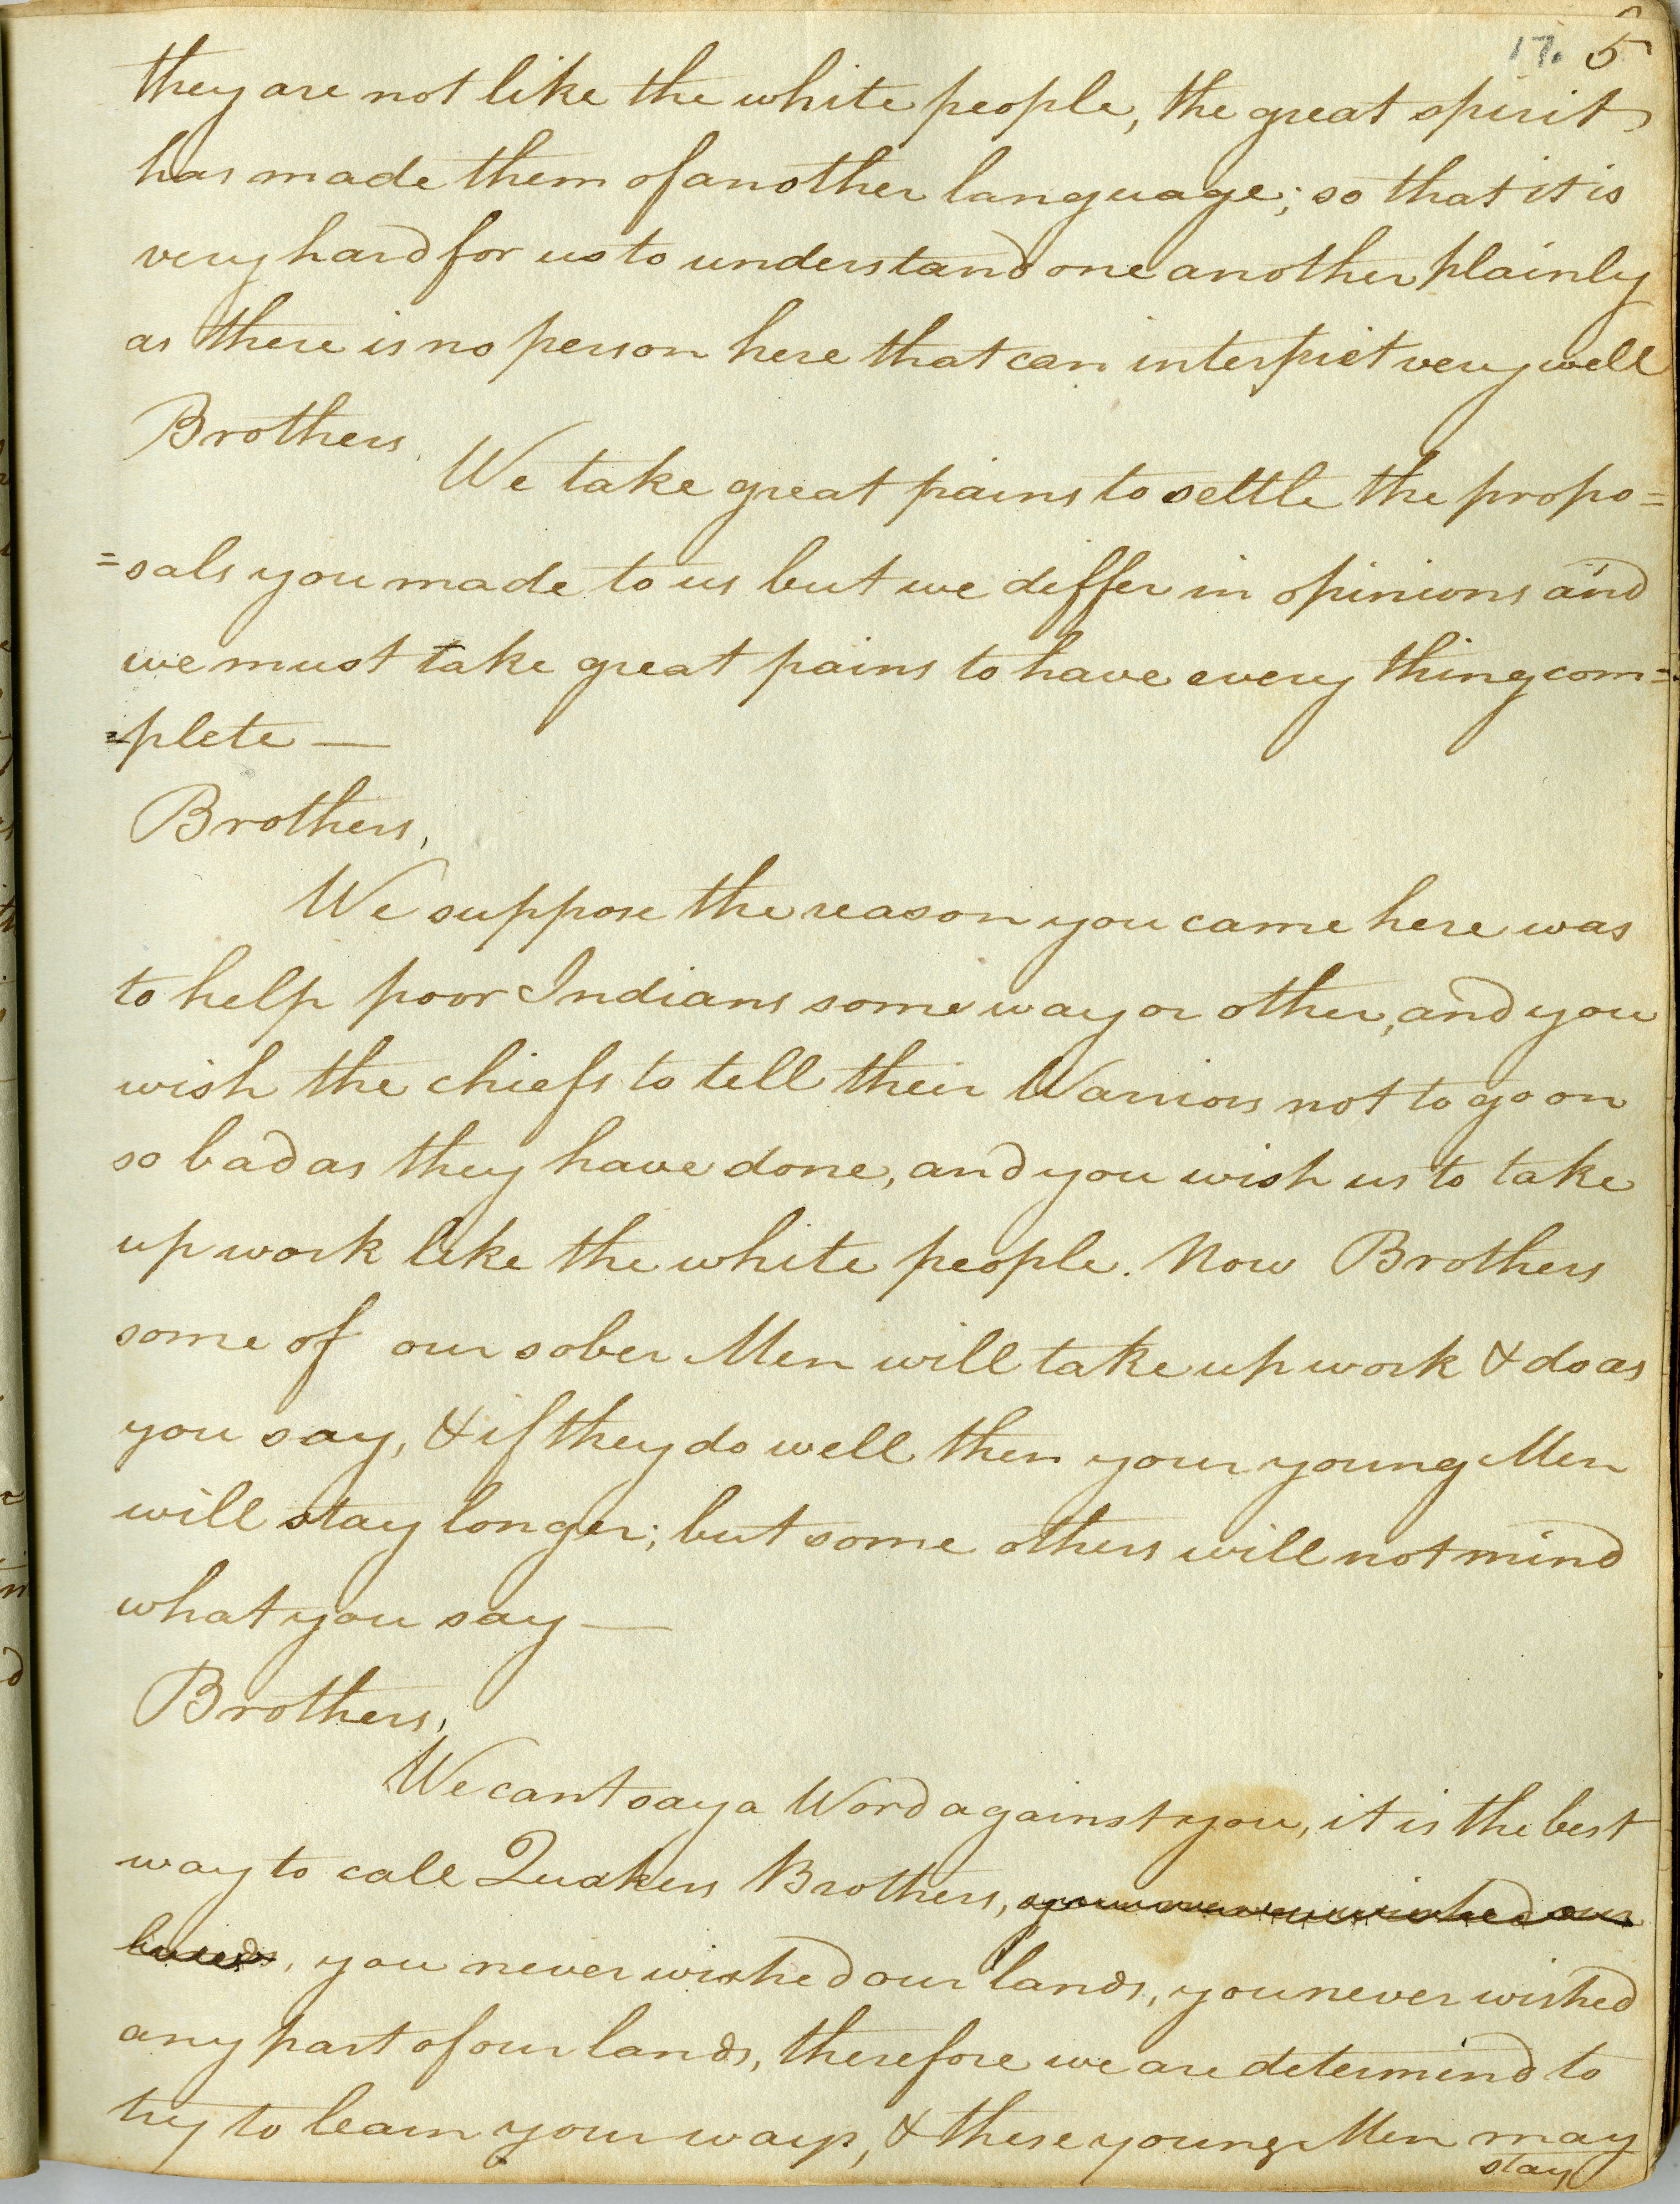 17. 5
they are not like the white people, the great spirit
has made them of another language; so that it is
very hard for us to understand one another plainly
as there is no person here that can interpret very well
Brothers,
We take great pains to settle the propo=
=sals you made to us but we differ in opinions and
we must take great pains to have every thing com=
=plete —
Brothers,
We suppose the reason you came here was
to help poor Indians some way or other, and you
wish the chiefs to tell their Warriors not to go on
so bad as they have done, and you wish us to take
up work like the white people. Now Brothers
some of our sober Men will take up work & do as
you say, & if they do well then your young Men
will stay longer; but some others will not mind
what you say —
Brothers,
We cant say a Word against you, it is the best
way to call Quakers Brothers, you never wished our
lands, you never wished our lands, you never wished
any part of our lands, therefore we are determind to
try to learn your ways, & these young Men may
stay